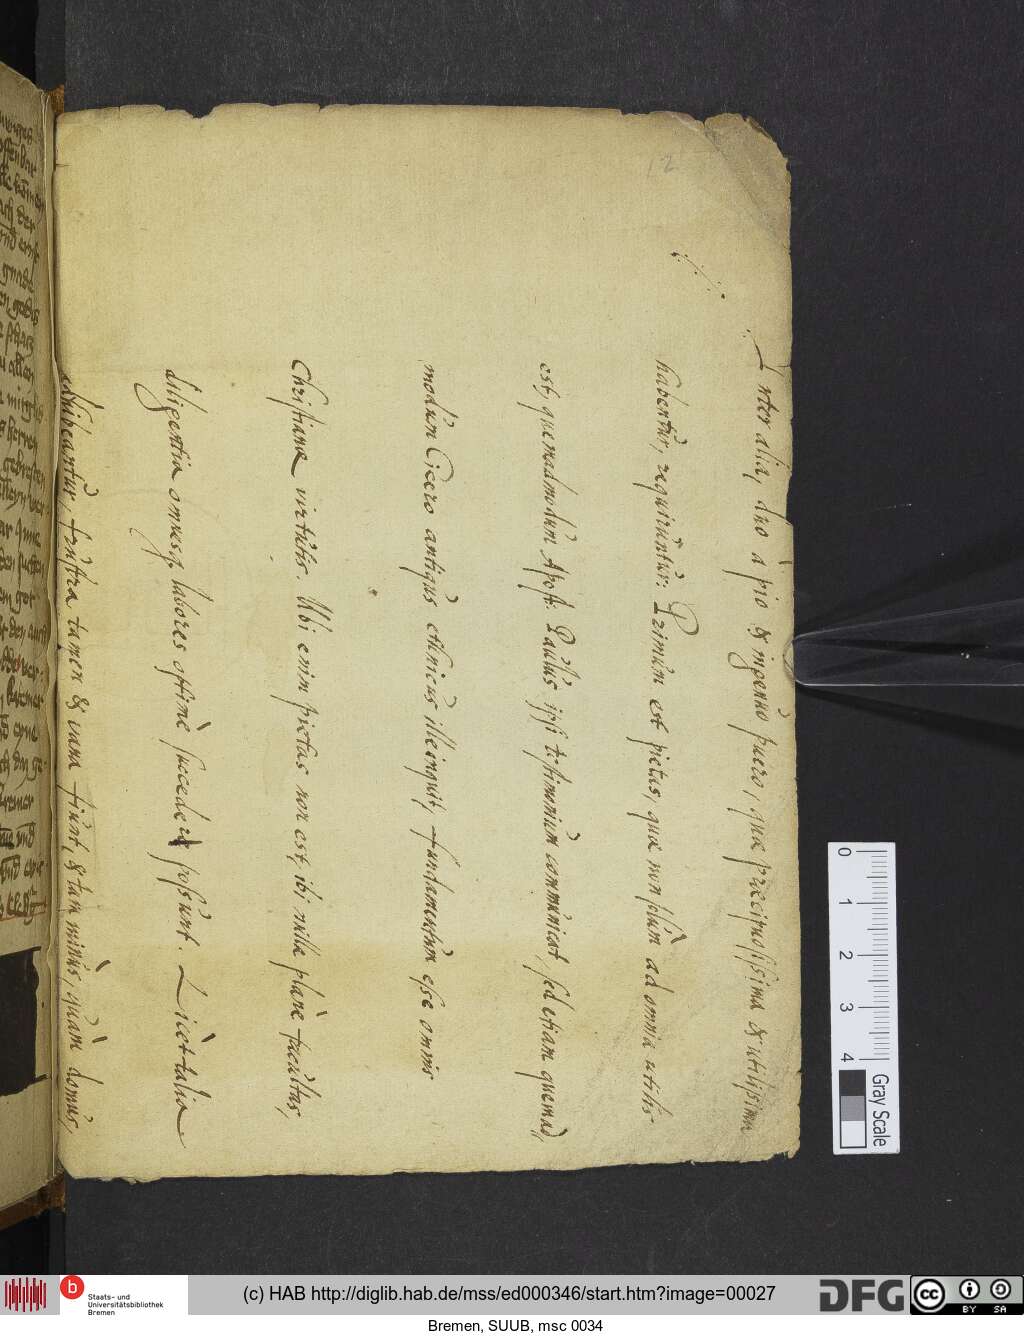 Inter alia, duo à pio & ingenuo puero, quæ præcipuissima & utilissima
habentur, requiruntur: Primum est pietas, quæ non solùm ad omnia utilis
est, quemadmodum Apost: Paulus ipsi testimonium communicat, sed etiam quemad,
modum Cicero antiquus ethnicus ille inquit, fundamentum esse omnis
Christianæ virtutis. Ubi enim pietas non est, ibi nulla planè facultas,
diligentia omnesq, labores optimè succedere possunt. Licèt talia
adhibeantur, frustra tamen & vana fiunt, & tam minùs, quàm domus,
12
0
1
2
3
4
Gray Scale
Staats- und
Universitätsbibliothek
Bremen
(c) HAB http://diglib.hab.de/mss/ed000346/start.htm?image=00027
DFG
cc
BY SA
Bremen, SUUB, msc 0034